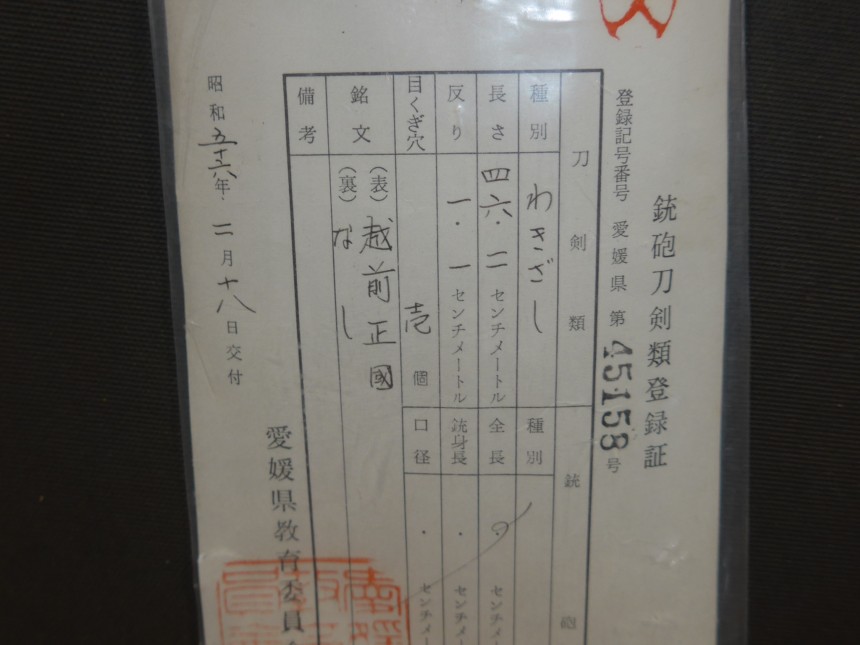 銃砲刀剣類登録証
登録記号番号 愛媛県 第45158号
刀剣類
銃砲
種別 わきざし
長さ 四六・二センチメートル
反り 一・一センチメートル
目くぎ穴 壱個
銘文 (表)越前正國
(裏)なし
備考
種別
全長 ・ センチメー
銃身長 ・ センチメー
口径 ・ センチメー
昭和五十六年二月十八日交付
愛媛県教育委員